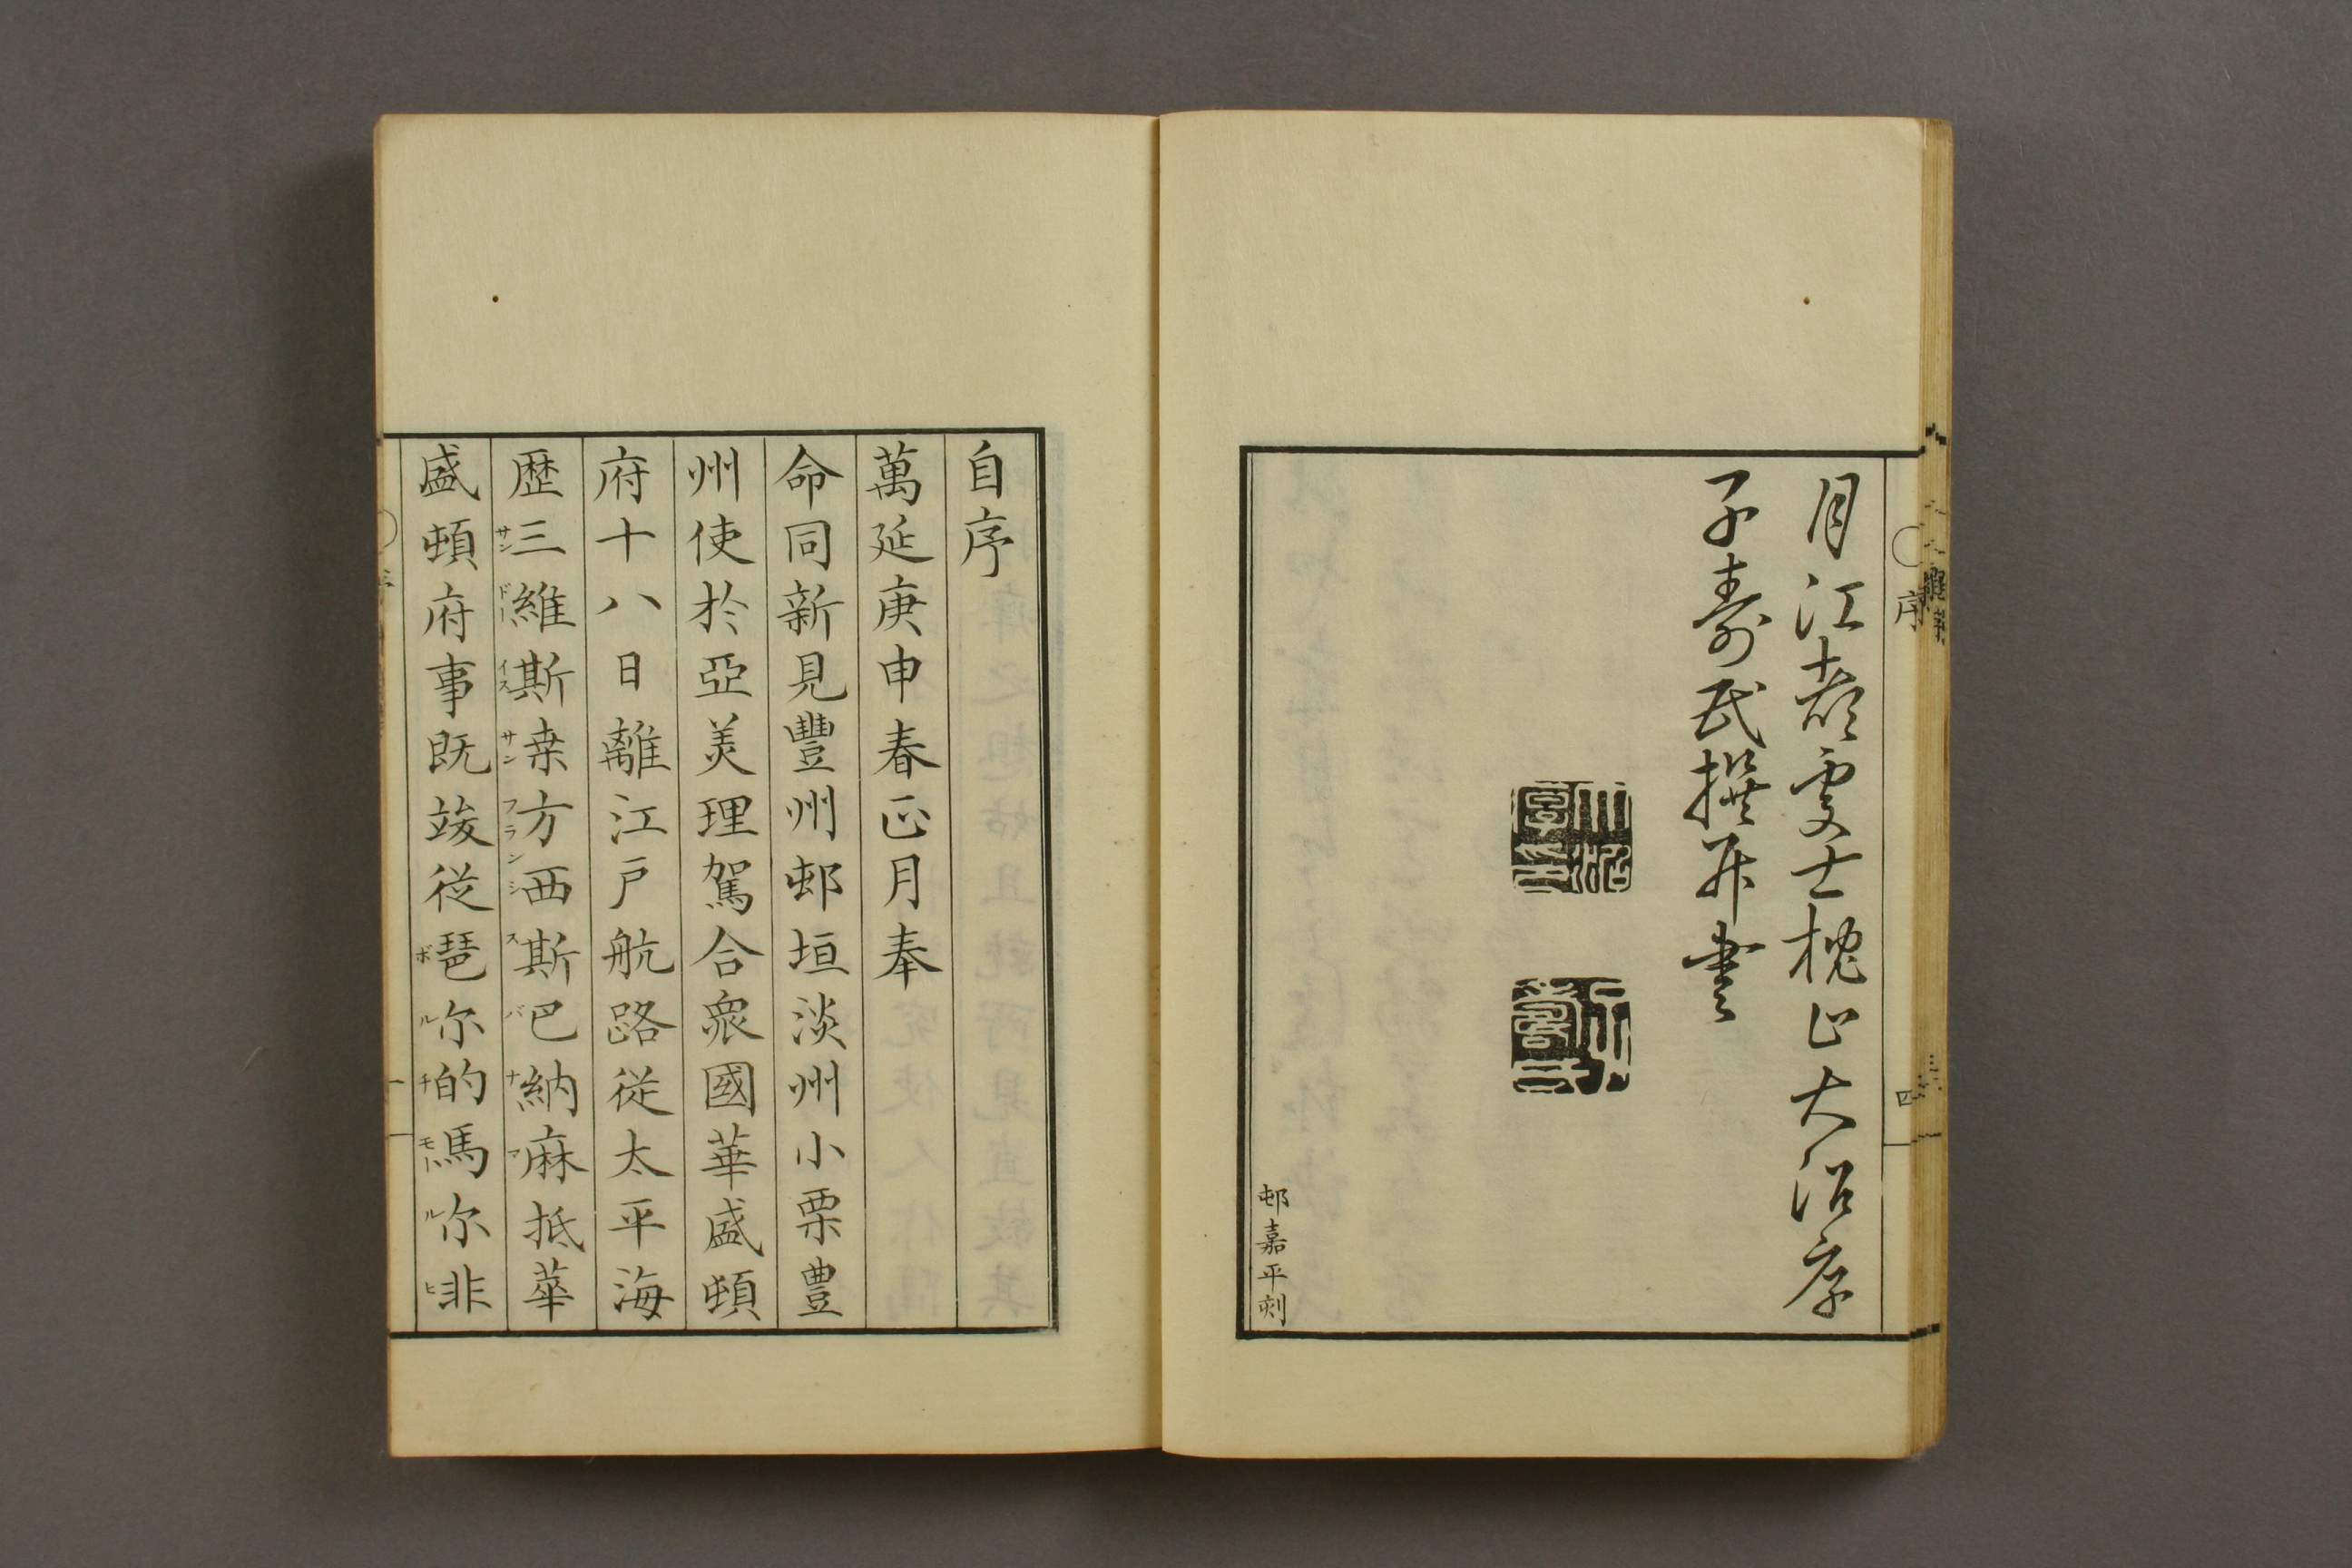 序
四
月江都處士枕山大沼厚
子壽氏撰并書
邨嘉平刻
自序
萬延庚申春正月奉
命同新見豐州邨垣淡州小栗豊
州使於亞美理駕合衆國華盛頓
府十八日離江戸航路從太平海
歴三維斯桒方西斯巴納麻抵華
サンドーイスサンフランシスバナマ
盛頓府事既竣從琶尓的馬尓非
ボルチモールヒ